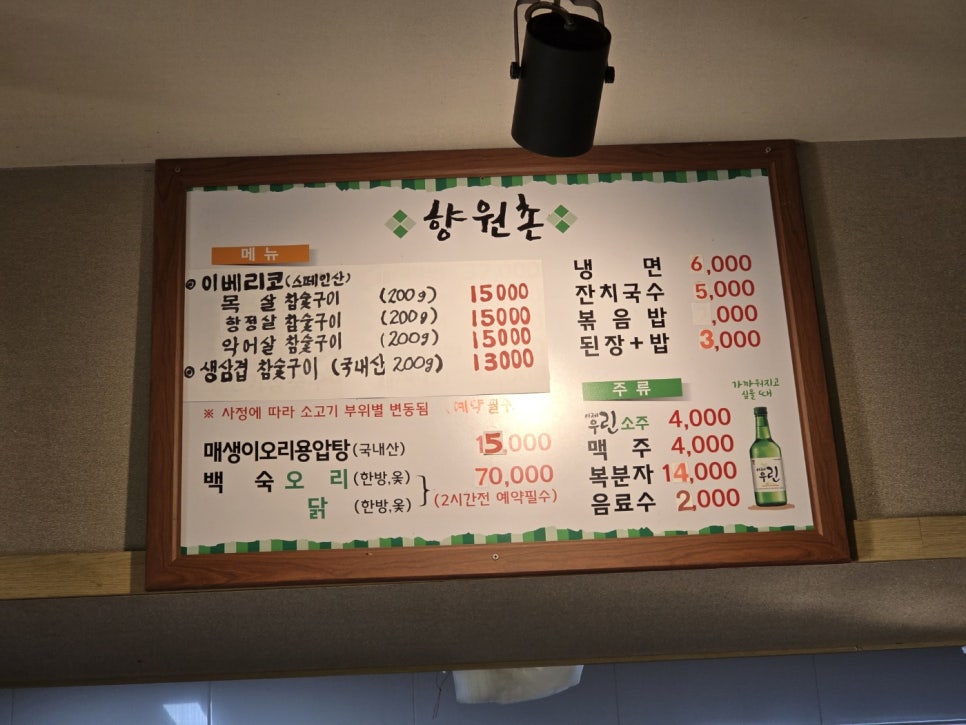 향원촌
메뉴
이베리코(스페인산)
목 살 참숯구이 (200g) 15000
항정살 참숯구이 (200g) 15000
악어살 참숯구이 (200g) 15000
생삼겹 참숯구이 (국내산 200g) 13000
※ 사정에 따라 소고기 부위별 변동됨 (예약필수
매생이오리용압탕(국내산) 15,000
백 숙 오 리 (한방,옻) 70,000
닭 (한방,옻) (2시간전 예약필수)
냉 면 6,000
잔치국수 5,000
볶음밥 ,000
된장+밥 3,000
주류
가까워지고
싶을 때
이제
우린 소주 4,000
맥 주 4,000
복분자 14,000
음료수 2,000
이제
우린